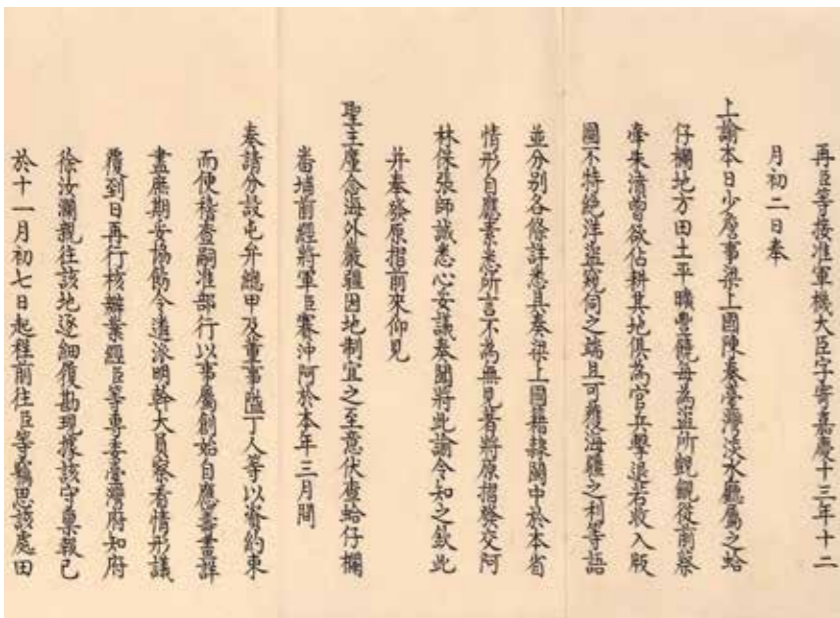 再臣等接准軍機大臣字寄嘉慶十三年十二
月初二日奉
上諭本日少詹事梁上國陳奏臺灣淡水廳屬之蛤
仔欄地方田土平曠豐饒每為盜所覬覦從前蔡
牽朱濆曾欲佔耕其地俱為官兵擊退若收入版
圖不特絕洋盜窺伺之端且可獲海疆之利等語
並分別各條詳悉具奏梁上國籍隸閩中於本省
情形自應素悉所言不為無見著將原摺發交阿
林保張師誠悉心妥議奏聞將此諭令知之欽此
并奉發原摺前來仰見
聖主廑念海外嚴疆因地制宜之至意伏查蛤仔欄
畨埔前經將軍臣賽沖阿於本年三月間
奏請分設屯弁總甲及董事隘丁人等以資約束
而便稽查嗣准部行以事屬創始自應籌畫詳
盡庶期妥協飭令遴派明幹大員察看情形議
覆到日再行核辦業經臣等專委臺灣府知府
徐汝瀾親往該地逐細履勘現據該守稟報已
於十一月初七日起程前往臣等竊思該處田